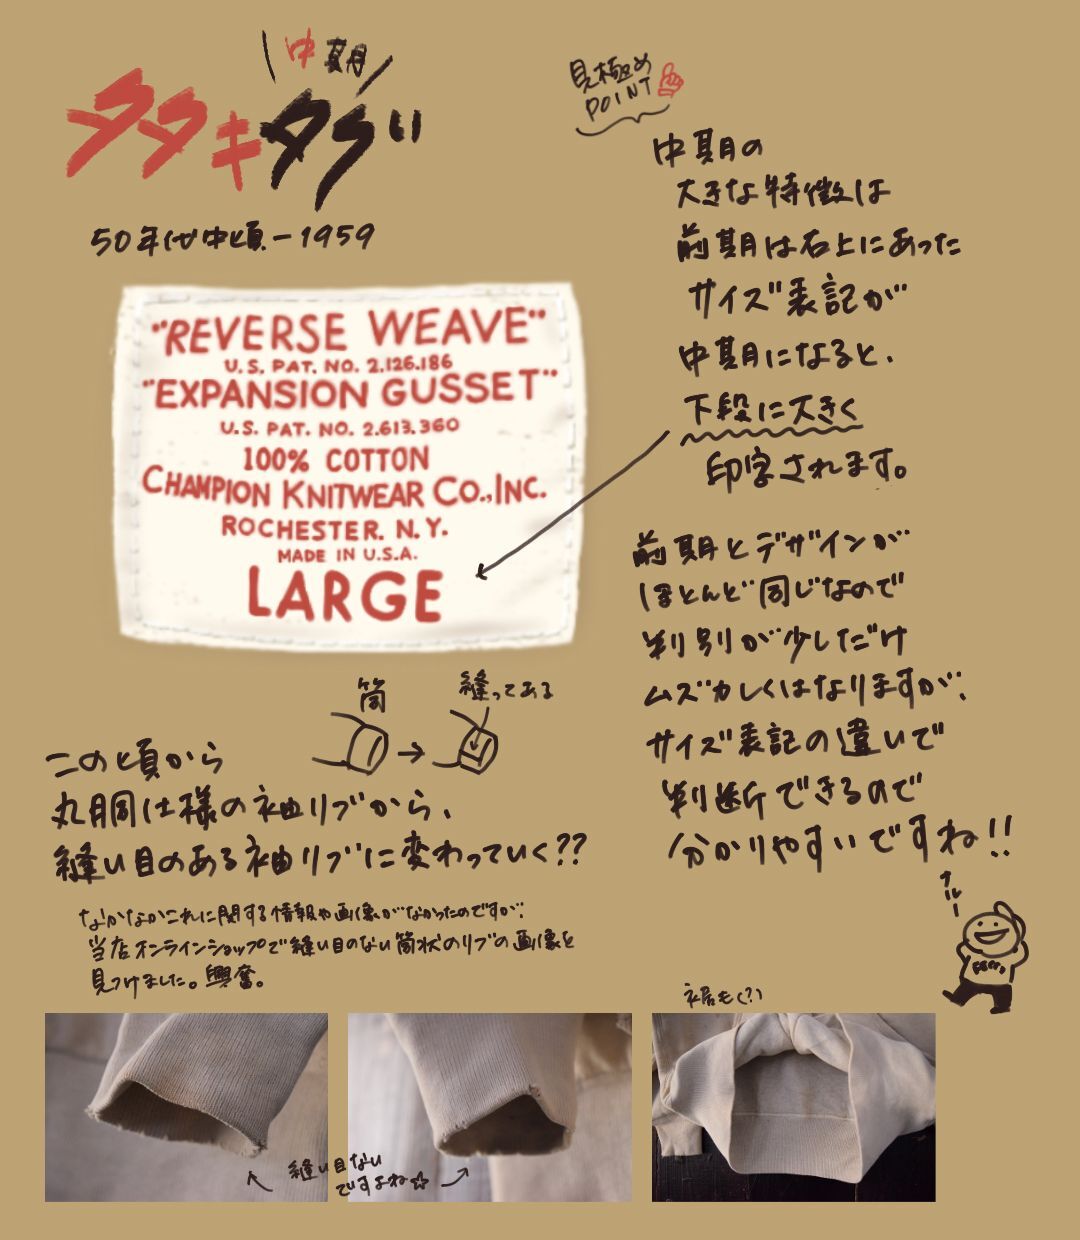 中期
タタキタグ
50年代中頃－1959
見極め
POINT
中期の
大きな特徴は
前期は右上にあった
サイズ表記が
中期になると、
下段に大きく
印字されます。
"REVERSE WEAVE"
U.S. PAT. NO. 2.126.186
"EXPANSION GUSSET"
U.S. PAT. NO. 2.613.360
100% COTTON
CHAMPION KNITWEAR CO.,INC.
ROCHESTER. N.Y.
MADE IN U.S.A.
LARGE
前期とデザインが
ほとんど同じなので
判別が少しだけ
ムズカしくはなりますが、
サイズ表記の違いで
判断できるので
分かりやすいですね!!
筒
縫ってある
この頃から
丸胴仕様の袖リブから、
縫い目のある袖リブに変わっていく??
なかなかこれに関する情報や画像がなかったのですが、
当店オンラインショップで縫い目のない筒状のリブの画像を
見つけました。興奮。
裾も(?)
縫い目ない
ですよね☆